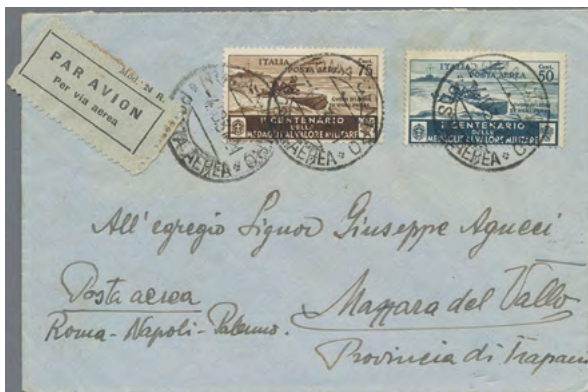 PAR AVION
Per via aerea
Mod. 24 R.
ITALIA
POSTA AEREA
Cent.
75
Iº CENTENARIO
DELLE
MEDAGLIE AL VALORE MILITARE
ITALIA
POSTA AEREA
Cent.
50
Iº CENTENARIO
DELLE
MEDAGLIE AL VALORE MILITARE
All'egregio Signor Giuseppe Agucci
Posta aerea
Roma-Napoli-Palermo.
Mazzara del Vallo
Provincia di Trapani